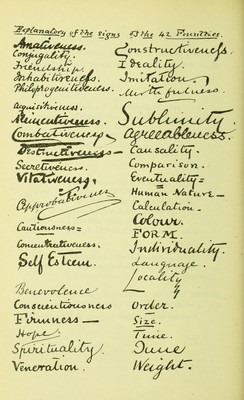 Explanatory of the signs of the 42 Faculties.
Amativeness.
Conjugality.
Friendship.
Inhabitiveness.
Philoprogenitiveness.
Acquisitiveness.
Alimentiveness.
Combativeness
Destructiveness
Secretiveness.
Vitativeness.
Approbativeness
Firmness
Cautiousness=
Concentrativeness.
Self Esteem.
Benevolence
Conscientiousness
Firmness—
Hope.
Spirituality.
Veneration.
Constructiveness
Ideality.
Imitation.
Mirthfulness.
Sublimity.
Agreeableness.
Causality.
Comparison.
Eventuality=
Human Nature—
Calculation—
Colour.
FORM.
Individuality.
Language.
Locality
Order.
Size.
Time.
Tune
Weight.